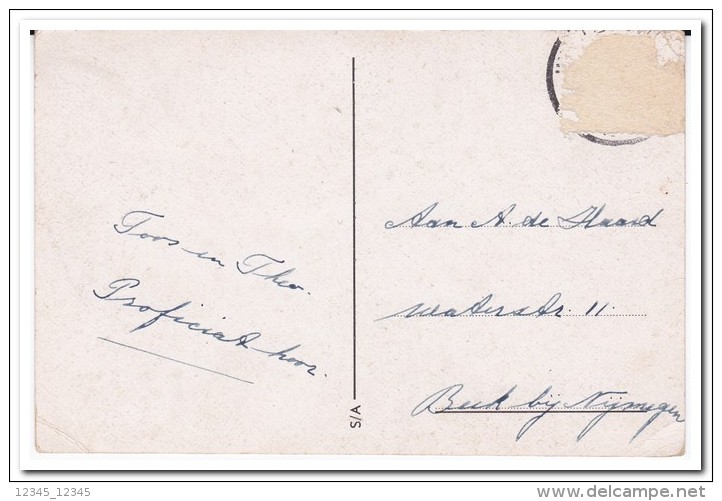 Toos en Theo.
Proficiat hoor.
S/A
Aan A. de Haard
waterstr. 11.
Beek bij Nijmegen
12345_12345
delcampe.net